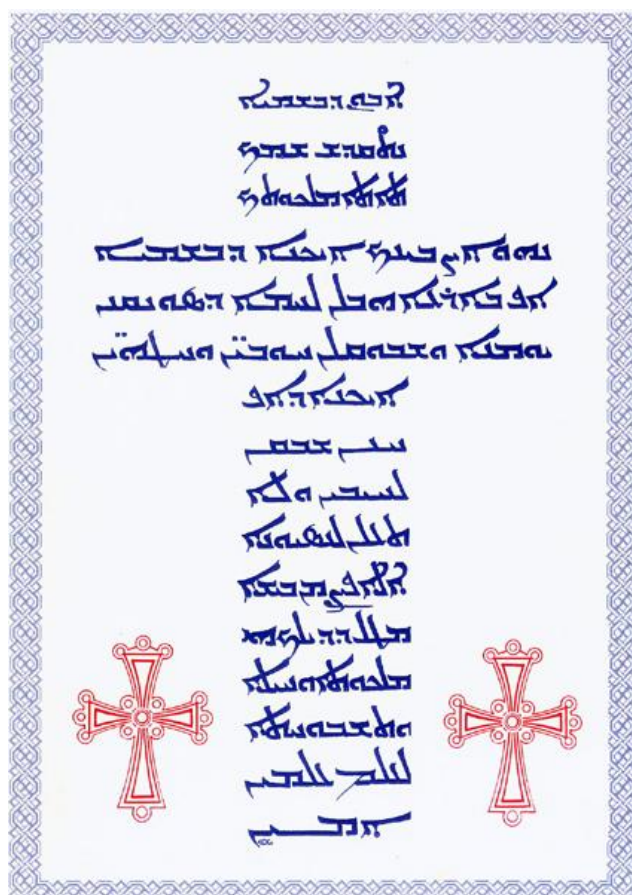 ܐܒܘܢ ܕܒܫܡܝܐ
ܢܬܩܕܫ ܫܡܟ
ܬܐܬܐ ܡܠܟܘܬܟ
ܢܗܘܐ ܨܒܝܢܟ ܐܝܟܢܐ ܕܒܫܡܝܐ
ܐܦ ܒܐܪܥܐ ܗܒܠܢ ܠܚܡܐ ܕܣܘܢܩܢܢ
ܝܘܡܢܐ ܘܫܒܘܩܠܢ ܚܘܒܝ̈ܢ ܘܚܛܗ̈ܝܢ
ܐܝܟܢܐ ܕܐܦ
ܚܢܢ ܫܒܩܢ
ܠܚܝܒܝܢ ܘܠܐ
ܬܥܠܢ ܠܢܣܝܘܢܐ
ܐܠܐ ܦܨܢ ܡܢ ܒܝܫܐ
ܡܛܠ ܕܕܝܠܟ ܗܝ
ܡܠܟܘܬܐ ܘܚܝܠܐ
ܘܬܫܒܘܚܬܐ
ܠܥܠܡ ܥܠܡܝܢ
ܐܡܝܢ